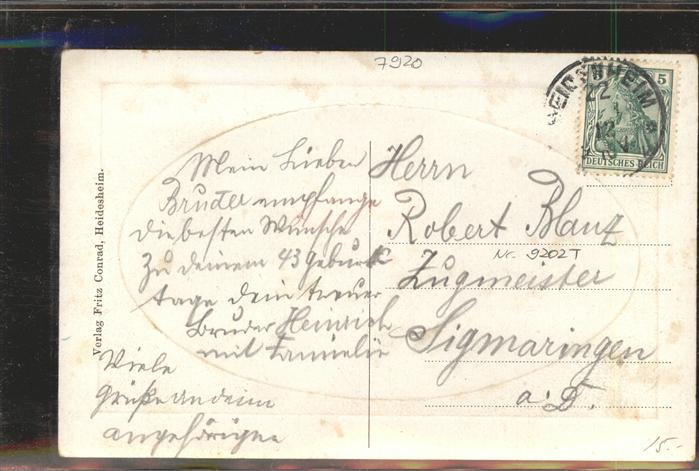 7920
HEIDENHEIM
22
12
5
DEUTSCHES REICH
Verlag Fritz Conrad, Heidesheim.
Mein Lieber
Bruder empfange
die besten Wünsche
Zu deinem 43 Geburts
tage dein treuer
Bruder Heinrich
mit Familie
Viele
Grüße an deine
angehörigen
Herrn
Robert Blanz
Nr. 9202T
Zugmeister
Sigmaringen
a. D.
15.-